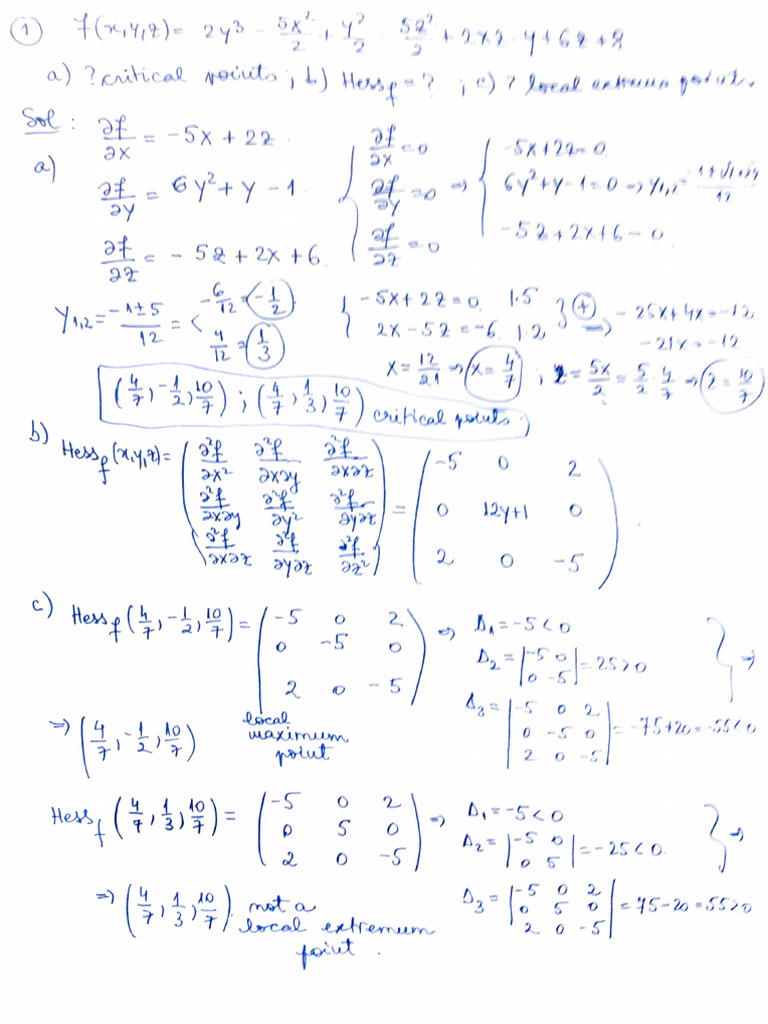 ① f(x,y,z) = 2y³ - 5x²/2 + y²/2 - 5z²/2 + 2xz - y + 6z + 2
a) ? critical points ; b) Hess_f = ? ; c) ? local extremum points.
Sol :
a) ∂f/∂x = -5x + 2z
∂f/∂y = 6y² + y - 1
∂f/∂z = -5z + 2x + 6
{ ∂f/∂x = 0
∂f/∂y = 0
∂f/∂z = 0
⇒ { -5x + 2z = 0
6y² + y - 1 = 0 ⇒ y₁,₂ =
-5z + 2x + 6 = 0
y₁,₂ = (-1 ± 5)/12 = < -6/12 = -1/2
4/12 = 1/3
{ -5x + 2z = 0 | · 5
2x - 5z = -6 | · 2 } ⊕ ⇒ -25x + 4x = -12
-21x = -12
x = 12/21 ⇒ x = 4/7 ; z = 5x/2 = 5/2 · 4/7 ⇒ z = 10/7
(4/7, -1/2, 10/7) ; (4/7, 1/3, 10/7) critical points ;
b) Hess_f (x,y,z) = ( ∂²f/∂x² ∂²f/∂x∂y ∂²f/∂x∂z
∂²f/∂x∂y ∂²f/∂y² ∂²f/∂y∂z
∂²f/∂x∂z ∂²f/∂y∂z ∂²f/∂z² )
= ( -5 0 2
0 12y+1 0
2 0 -5 ) .
c) Hess_f (4/7, -1/2, 10/7) = ( -5 0 2
0 -5 0
2 0 -5 )
⇒ Δ₁ = -5 < 0
Δ₂ = | -5 0
0 -5 | = 25 > 0
Δ₃ = | -5 0 2
0 -5 0
2 0 -5 | = -75 + 20 = -55 < 0 } ⇒
⇒ (4/7, -1/2, 10/7) local
maximum
point
Hess_f (4/7, 1/3, 10/7) = ( -5 0 2
0 5 0
2 0 -5 )
⇒ Δ₁ = -5 < 0
Δ₂ = | -5 0
0 5 | = -25 < 0
Δ₃ = | -5 0 2
0 5 0
2 0 -5 | = 75 - 20 = 55 > 0 } ⇒
⇒ (4/7, 1/3, 10/7) not a
local extremum
point .